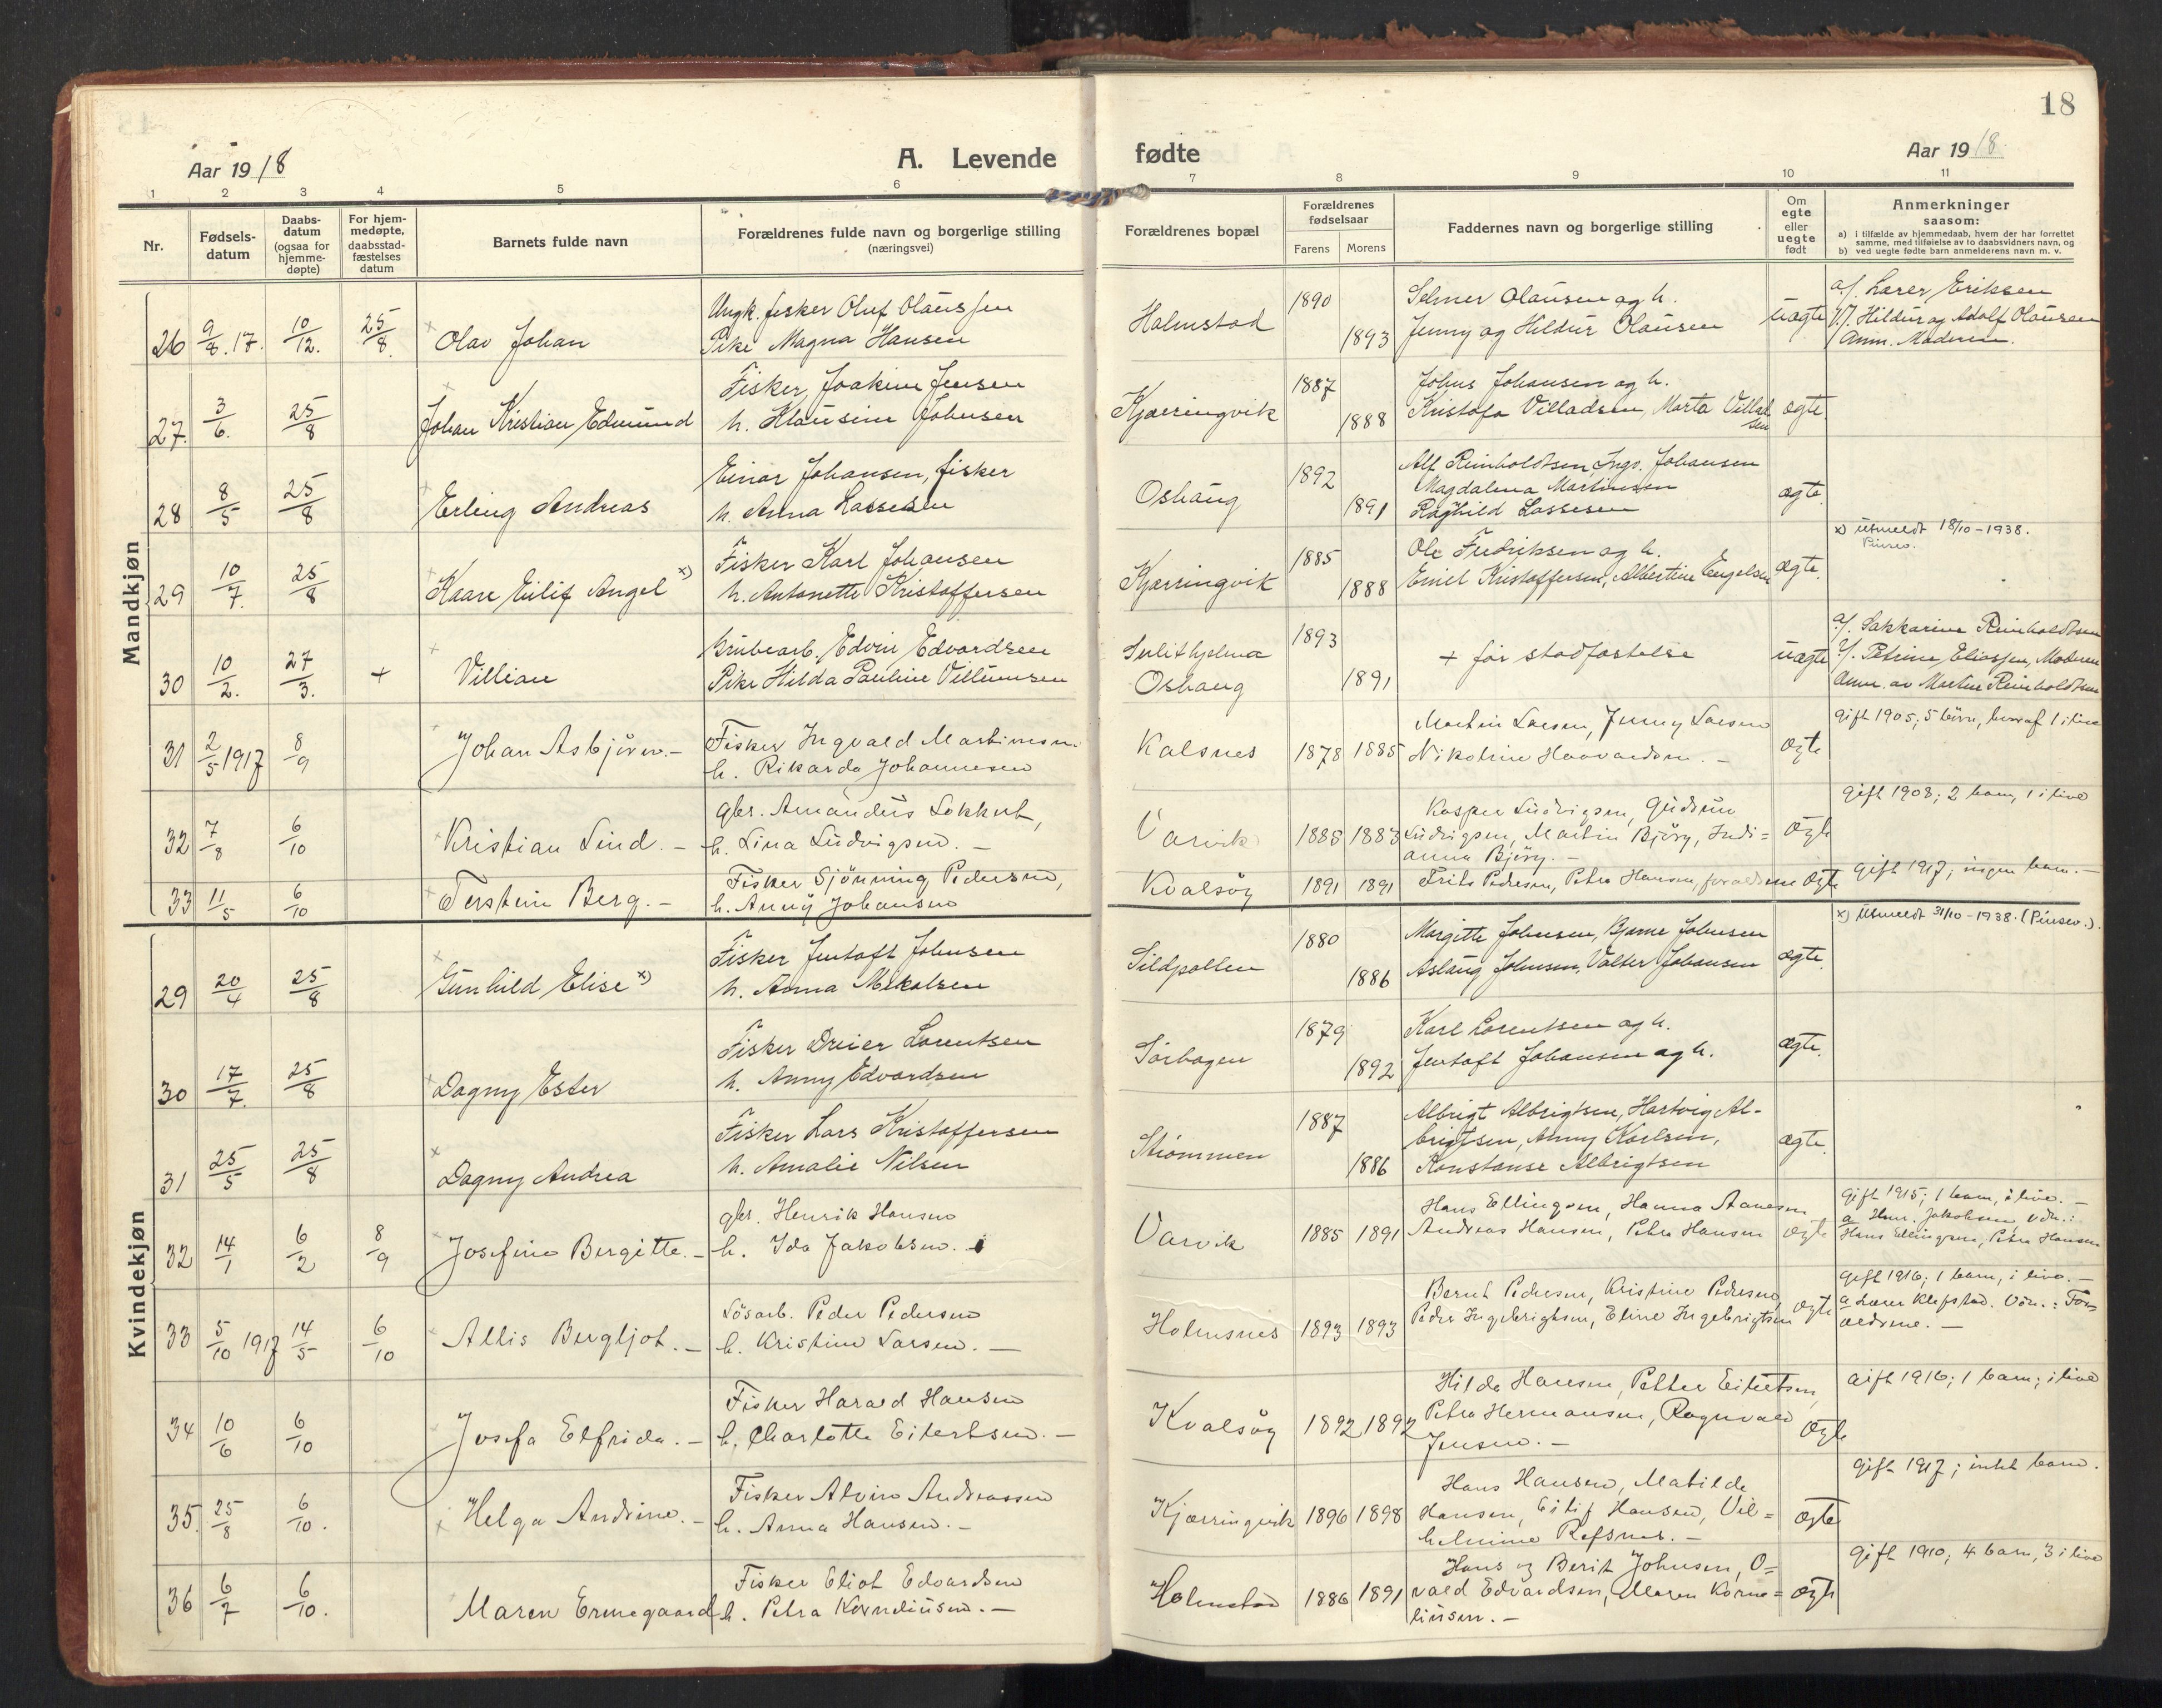 18
Aar 1918
A. Levende fødte
Aar 1918
1 2 3 4 5 6 7 8 9 10 11
Nr.
Fødsels-
datum
Daabs-
datum
(ogsaa for
hjemme-
døpte)
For hjem-
medøpte,
daabsstad-
fæstelses
datum
Barnets fulde navn
Forældrenes fulde navn og borgerlige stilling
(næringsvei)
Forældrenes bopæl
Forældrenes
fødselsaar
Farens Morens
Faddernes navn og borgerlige stilling
Om
egte
eller
uegte
født
Anmerkninger
saasom:
a) i tilfælde av hjemmedaab, hvem der har forrettet
samme, med tilføielse av to daabsvidners navn, og
b) ved uegte fødte barn anmelderens navn m. v.
Mandkjøn
26 9/8.17. 10/12. 25/8. Olav Johan
Ungk. fisker Oluf Olaussen
Pike Magna Hansen
Holmstad 1890 1893
Selmer Olausen og h.
Jenny og Hildur Olausen
uægte
a/. Lærer Eriksen
Hildur og Adolf Olausen
Anm. Moderen.
27. 3/6. 25/8 Johan Kristian Edmund
Fisker Joakim Jensen
h. Klausine Johnsen
Kjærringvik 1887 1888
Johns Johansen og h.
Kristofa Villadsen, Marta Villad
sen
ægte.
28 8/5 25/8 Erling Andreas
Einar Johansen, fisker
h. Anna Lassesen
Oshaug 1892 1891
Alf Reinholdtsen, Ingv. Johansen
Magdalena Martinsen
Raghild Lassesen
ægte.
29 10/7. 25/8 Kaare Eilif Angel x)
Fisker Karl Johansen
h. Antonette Kristoffersen
Kjærringvik 1885 1888
Ole Fredriksen og h.
Emil Kristoffersen, Albertine Engelsen
ægte.
x) Utmeldt 18/10-1938.
Pinsev.
30 10/2. 27/3. + Villian
Grubearb. Edvin Edvardsen
Pike Hilda Pauline Villumsen
Sulithjelma
Oshaug
1893 1891
+ før stadfæstelse
uægte
a/. Sakkarine Reinholdtsen
Petrine Eliassen, Moderen
Anm. av Martin Reinholdtsen
31 2/5 1917 8/9 Johan Asbjörn.-
Fisker Ingvald Martinsen.
h. Rikarda Johannesen
Kalsnes 1878 1885
Martin Larsen, Jenny Larsen
Nikoline Haavardsen. -
ægte
gift 1905; 5 börn, hvoraf 1 i live
32 7/8 6/10 Kristian Lind. -
gbr. Amandus Sokkut,
h. Lina Ludvigsen. -
Varvik 1885 1883
Kasper Ludvigsen, Gudrun
Ludvigsen, Martin Björg, Indi=
anna Björg. -
ægte
gift 1908; 2 barn, 1 i live
33 11/5 6/10 Torstein Berg. -
Fisker Sjönning Pedersen,
h. Anny Johansen
Kvalsöy 1891 1891
Frits Pedersen, Petra Hansen, forældrene
ægte
gift 1917; ingen barn. -
Kvindekjøn
29 20/4 25/8 Gunhild Elise x)
Fisker Jentoft Johnsen
h. Anna Mikalsen
Sildpollen 1880 1886
Margitte Johnsen, Bjarne Johnsen
Aslaug Johnsen, Valter Johansen
ægte.
x) Utmeldt 31/10-1938. (Pinsev.).
30 17/7. 25/8 Dagny Ester
Fisker Dreier Lorentsen
h. Anny Edvardsen
Sørbogen 1879 1892
Karl Lorentsen og h.
Jentoft Johansen og h.
ægte.
31 25/5 25/8 Dagny Andrea
Fisker Lars Kristoffersen
h. Amalie Nilsen
Strømmen 1887 1886
Albrigt Albrigtsen, Hartvig Al-
brigtsen, Anny Karlsen,
Konstanse Albrigtsen
ægte.
32 14/1 6/2 8/9 Josefine Bergitte. -
gbr. Henrik Hansen
h. Ida Jakobsen.
Varvik 1885 1891
Hans Ellingsen, Hanna Aanesen
Andreas Hansen, Petra Hansen
ægte
gift 1915; 1 barn, i live. -
a Henr. Jakobsen, vdn.:
Hans Ellingsen, Petra Hansen
33 5/10 1917 14/5 6/10 Allis Bergljot. -
Lösarb. Peder Pedersen
h. Kristine Larsen. -
Holmsnes 1893 1893
Bernt Pedersen, Kristine Pedersen,
Peder Ingebrigtsen, Eline Ingebrigtsen
ægte
gift 1916; 1 barn, i live. -
a Lærer Klefstad. Vdn.: For-
ældrene. -
34 10/6 6/10 Josefa Elfrida. -
Fisker Harald Hansen
h. Charlotte Eilertsen. -
Kvalsöy 1892 1892
Hilda Hansen, Petter Eilertsen,
Petra Hermansen, Ragnvald
Jensen. -
ægte
gift 1916; 1 barn; i live
35. 25/8 6/10. Helga Andrine. -
Fisker Alvin Andreassen
h. Anna Hansen. -
Kjærringvik 1896 1898
Hans Hansen, Matilde
Hansen, Eilif Hansen, Vil=
helmine Refsnes. -
ægte
gift 1917; intet barn.
36 6/7 6/10. Maren Ermegaard
Fisker Eliot Edvardsen
h. Petra Korneliusen. -
Holmstad 1886 1891
Hans og Berit Johnsen, O=
vald Edvardsen, Maren Korne=
liusen. -
ægte
gift 1910; 4 barn, 3 i live